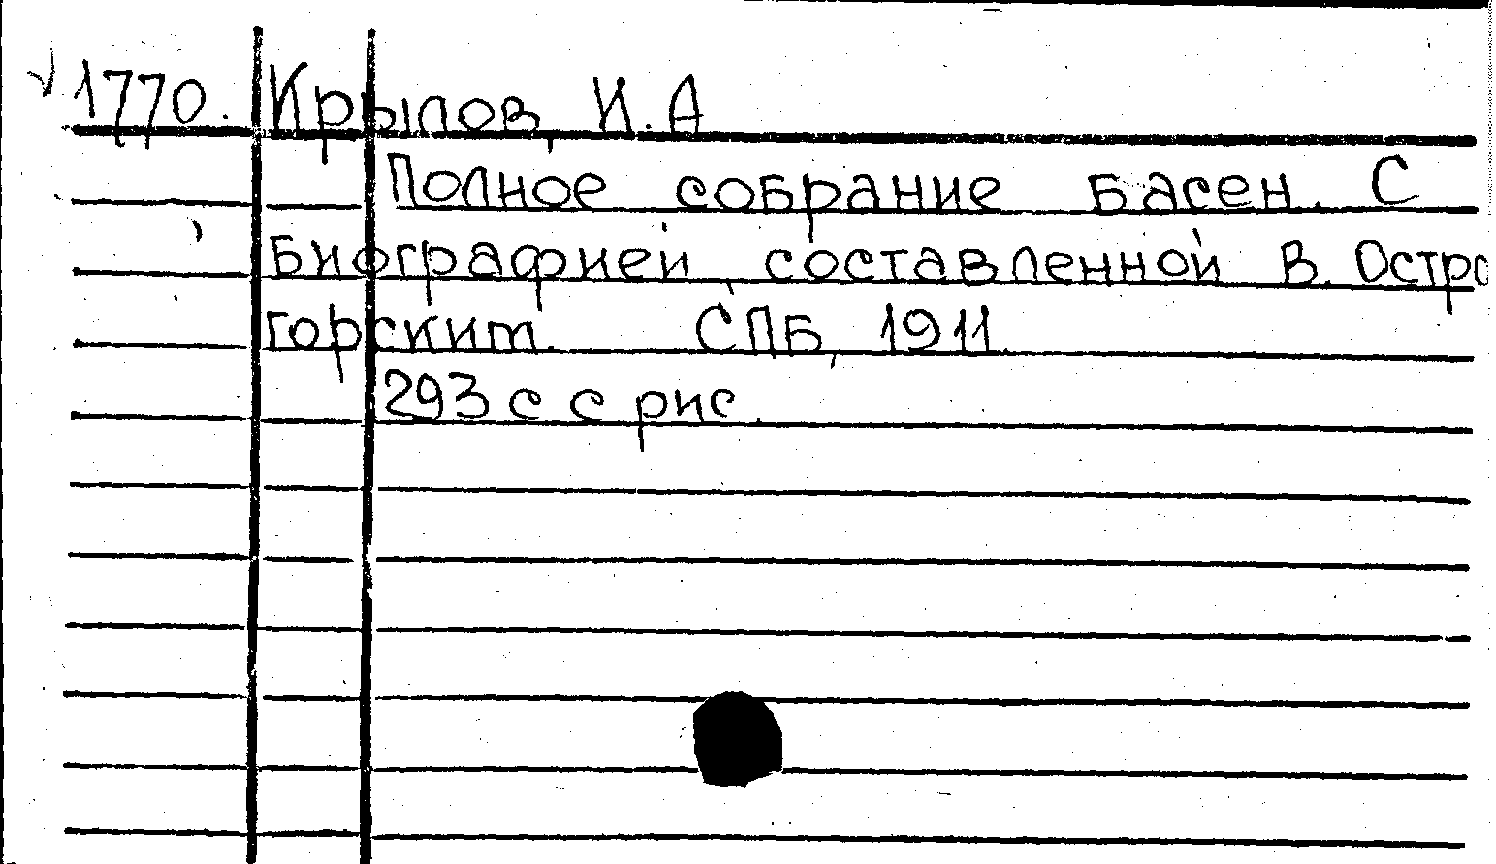 1770. Крылов, И.А
Полное собрание басен. С
биографией, составленной В. Остро
горским. СПБ, 1911.
293 с с рис.